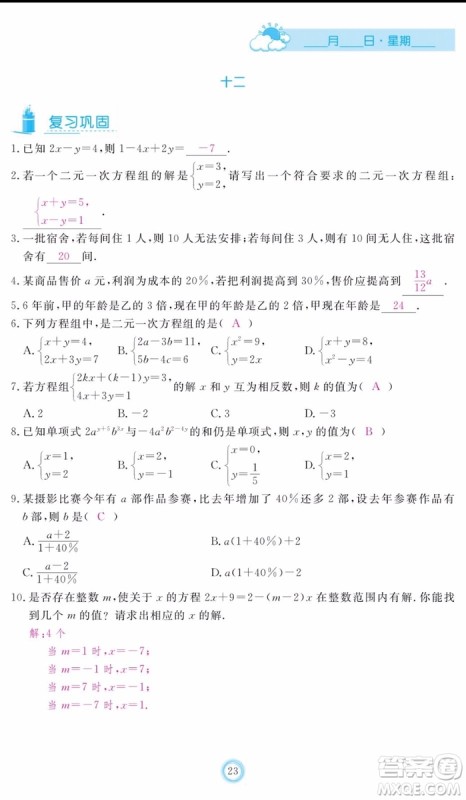 ____月____日·星期____
十二
复习巩固
1.已知 2x-y=4,则 1-4x+2y= -7 .
2.若一个二元一次方程组的解是{x=3, y=2, 请写出一个符合要求的二元一次方程组:
{x+y=5, x-y=1 .
3.一批宿舍,若每间住1人,则10人无法安排;若每间住3人,则有10间无人住,这批宿
舍有 20 间.
4.某商品售价a元,利润为成本的20%,若把利润提高到30%,售价应提高到 13/12 a .
5.6年前,甲的年龄是乙的3倍,现在甲的年龄是乙的2倍,甲现在年龄是 24 .
6.下列方程组中,是二元一次方程组的是( A )
A.{x+y=4, 2x+3y=7 B.{2a-3b=11, 5b-4c=6 C.{x²=9, y=2x D.{x+y=8, x²-y=4
7.若方程组{2kx+(k-1)y=3, 4x+3y=1 的解x和y互为相反数,则k的值为( A )
A. 2 B. -2 C. 3 D. -3
8.已知单项式 2a^{y+5}b^{3x} 与 -4a^{2x}b^{2-4y} 的和仍是单项式,则x,y的值为( B )
A.{x=1, y=2 B.{x=2, y=-1 C.{x=0, y=1/5 D.{x=2, y=1
9.某摄影比赛今年有a部作品参赛,比去年增加了40%还多2部,设去年参赛的作品有
b部,则b是( C )
A. (a+2)/(1+40%) B. a(1+40%)+2
C. (a-2)/(1+40%) D. a(1+40%)-2
10.是否存在整数m,使关于x的方程2x+9=2-(m-2)x在整数范围内有解.你能找
到几个m的值?请求出相应的x的解.
解:4个
当m=1时,x=-7;
当m=-1时,x=7;
当m=7时,x=-1;
当m=-7时,x=1.
23
答案圈
MXQE.COM